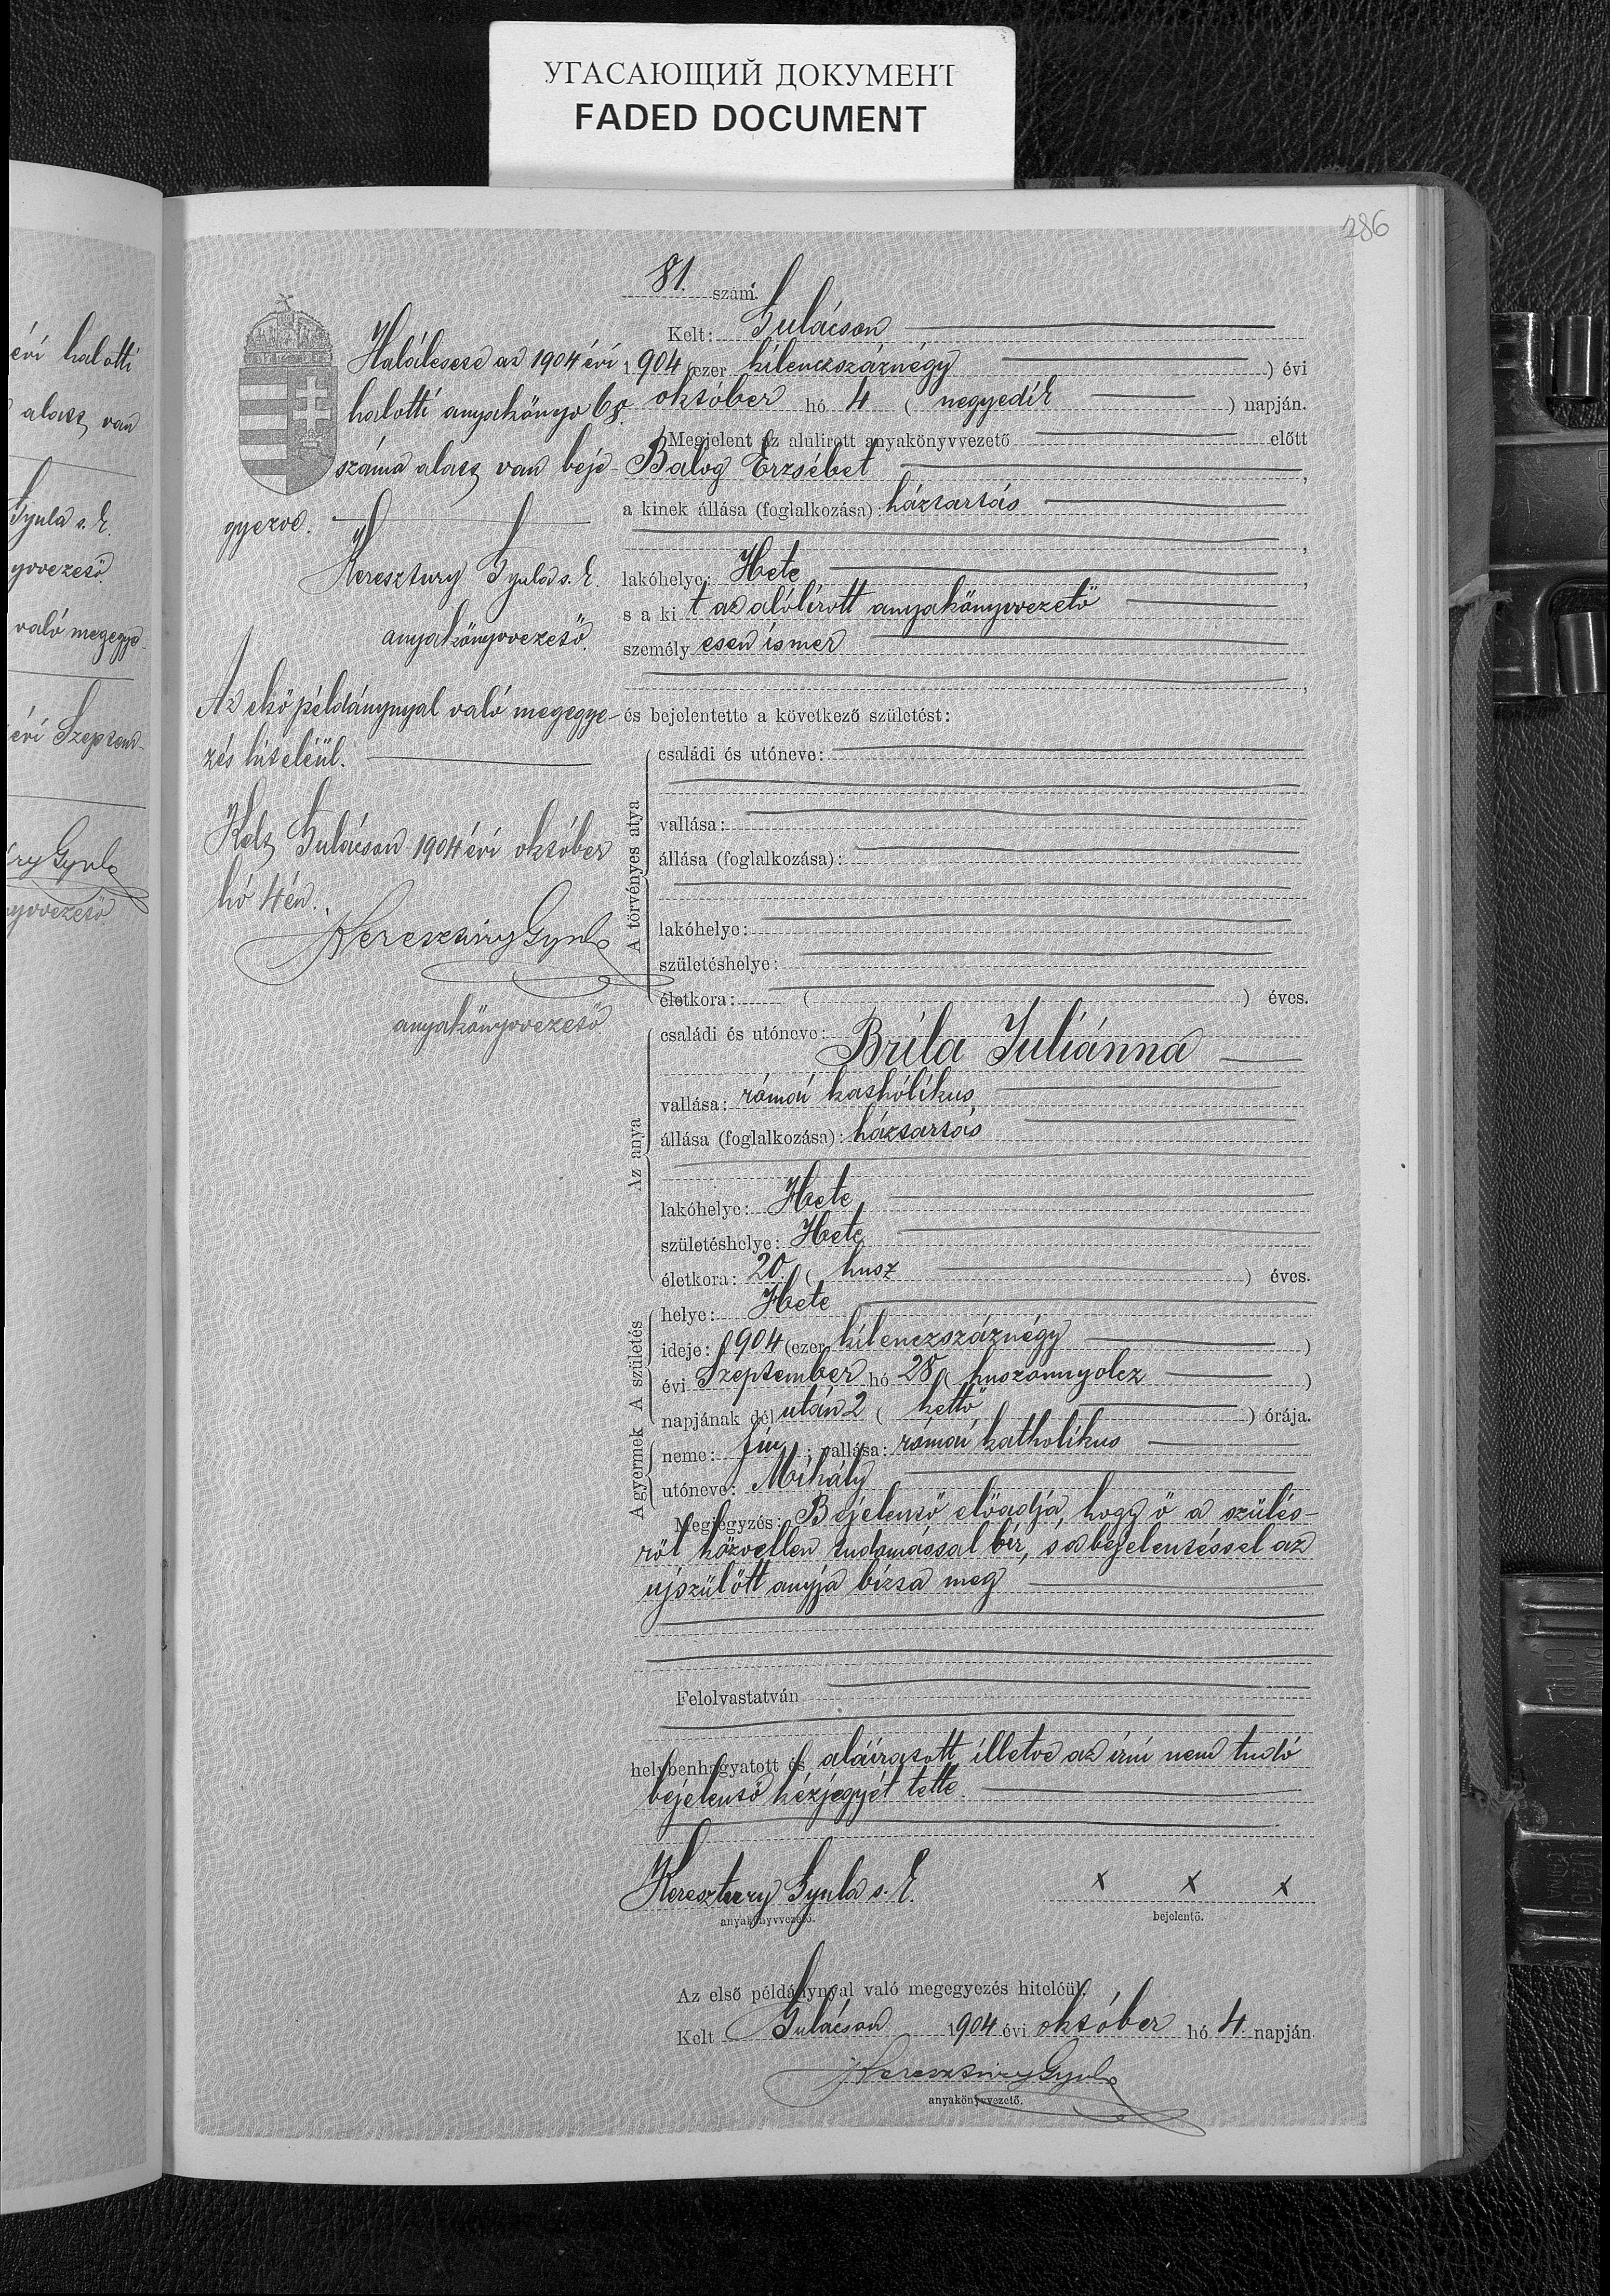 УГАСАЮЩИЙ ДОКУМЕНТ
FADED DOCUMENT
286
évi halotti
alatt van
Gyula s. k.
yvvezető
való megegye-
évi Szeptem-
ry Gyula
yvvezető
81. szám.
Kelt: Gulácson
1904 (ezer kilenczszáznégy) évi
október hó 4 (negyedik) napján.
Megjelent az alulirott anyakönyvvezető előtt
Balog Erzsébet,
a kinek állása (foglalkozása): háztartás
,
lakóhelye: Hete,
s a kit az alólirott anyakönyvvezető
személyesen ismer
,
és bejelentette a következő születést:
Halálesete az 1904 évi
halotti anyakönyv 68.
száma alatt van beje-
gyezve.
Keresztury Gyula s. k.
anyakönyvvezető.
Az első példánynyal való megegye-
zés hiteléül.
Kelt Gulácson 1904 évi október
hó 4én.
Keresztury Gyula
anyakönyvvezető
A törvényes atya
családi és utóneve:
vallása:
állása (foglalkozása):
lakóhelye:
születéshelye:
életkora: ( ) éves.
Az anya
családi és utóneve:
Bríla Juliánna
vallása: római kathólikus
állása (foglalkozása): háztartás
lakóhelye: Hete
születéshelye: Hete
életkora: 20 (husz) éves.
A születés
helye: Hete
ideje: 1904 (ezer kilenczszáznégy)
évi Szeptember hó 28 (huszonnyolcz)
napjának délután 2 (kettő) órája.
A gyermek
neme: fiu; vallása: római katholikus
utóneve: Mihály
Megjegyzés: Bejelentő előadja, hogy ő a szülés-
ről közvetlen tudomással bir, s a bejelentéssel az
ujszülött anyja bizta meg
Felolvastatván
helybenhagyatott és aláiratott, illetve az irni nem tudó
bejelentő kézjegyét tette.
Keresztury Gyula s. k. x x x
anyakönyvvezető. bejelentő.
Az első példánynyal való megegyezés hiteléül.
Kelt Gulácson 1904 évi október hó 4 napján.
Keresztury Gyula
anyakönyvvezető.